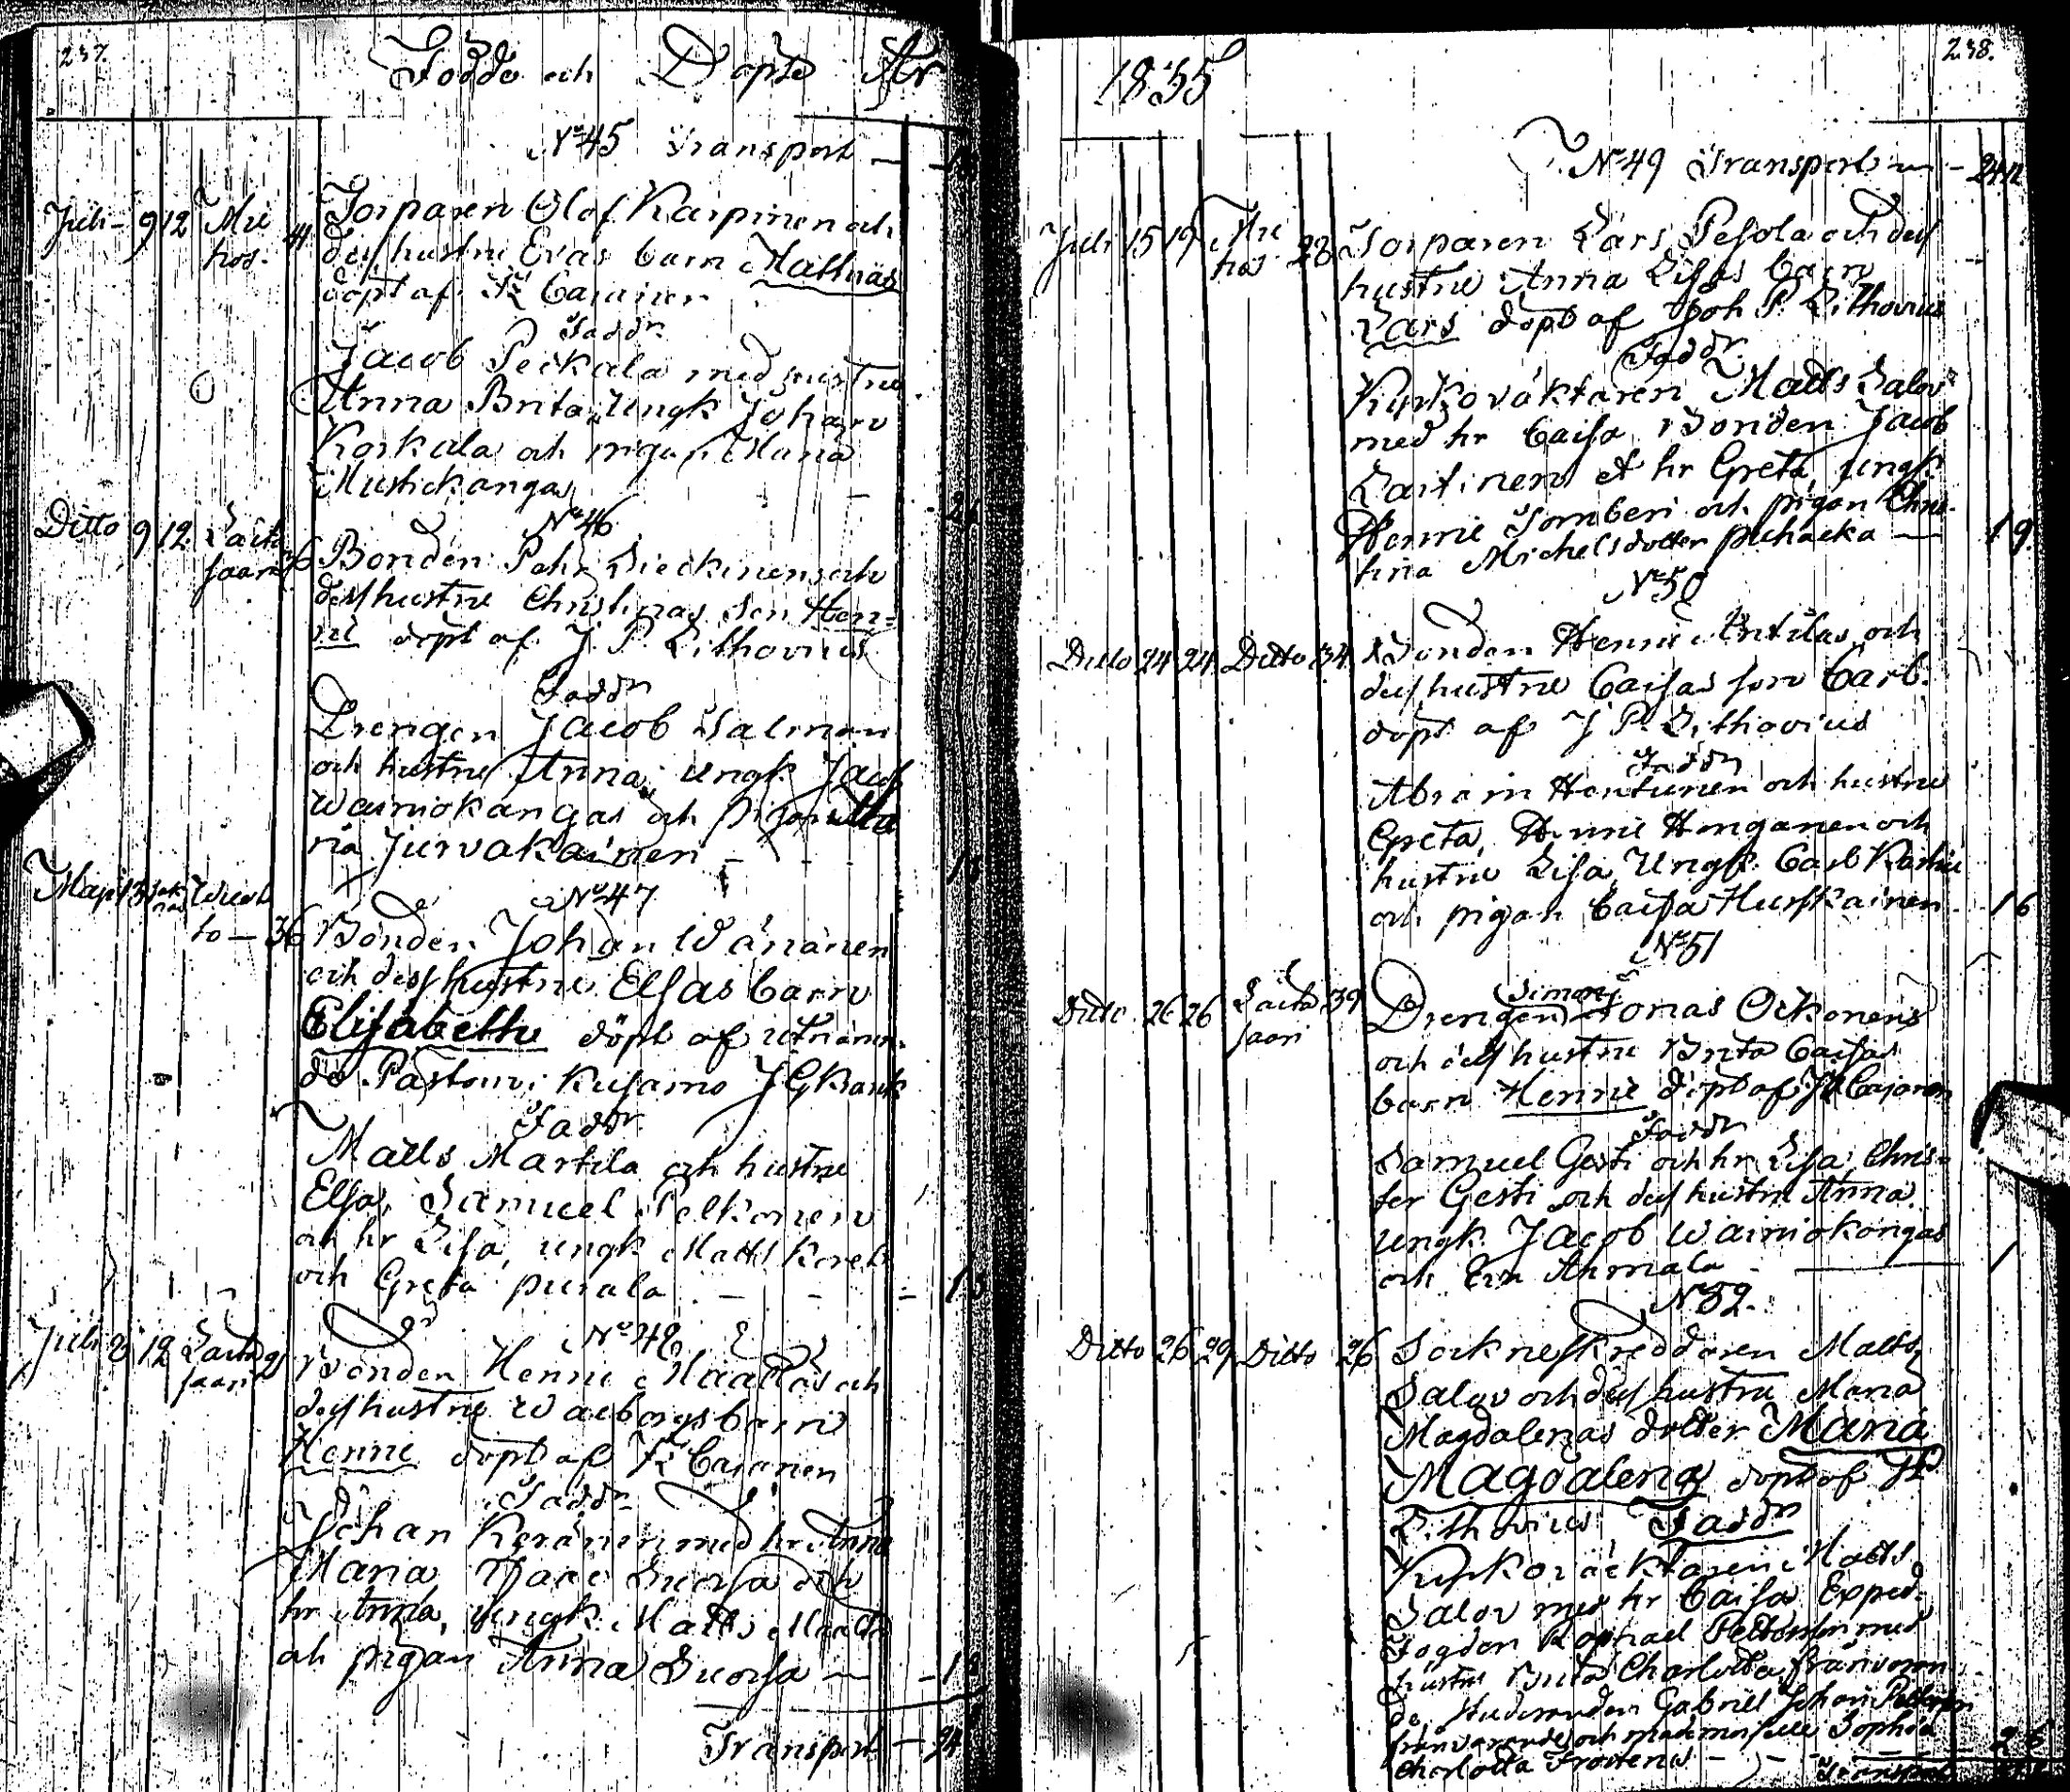 237.
Födde och Döpte År
No 45 Transport —
Juli 9 12 Mie
hos. 41
Torparen Olof Karpinen och
dess hustru Evas barn Mathias
döpt af K Cajanen
Faddr
Jacob Peckala med hustru
Anna Brita, Ungk Johan
Koskala och pigan Maria
Mustickangas
No 46
Ditto 9 12 Laita
saari
Bonden Pehr Lieckinens och
dess hustru Christinas son Hen=
ric döpt af J P. Lithovius
Faddr
Drengen Jacob Salmen
och hustru Anna, ungk Jacob
Wainiokangas och pigan Ma
ria Jurvakainen
No 47
Maji 13
to — 36
Bonden Johan Wänänen
och dess hustru Elsas barn
Elisabeth döpt af
Pastorn i Kusamo
Faddr
Matts Martila och hustru
Elsa, Samuel Pelkonen
och hr Lisa, ungk Matts
och Greta purala — 15
No 48
Juli 8 12 Laita
saari
Bonden Henric Määttäs och
dess hustru Walborgs barn
Henric döpt af K Cajanen
Faddr
Johan Keränen med hr Anna
Maria Isaac Suorsa och
hr Anna, ungk Matts Määttä
och pigan Anna Suorsa —
Transport —
1835
238.
No 49 Transport —
Juli 15 19 Mie
hos 28
Torparen Lars Pesola och dess
hustru Anna Lisas barn
Lars döpt af Joh P. Lithovius
Faddr
Kyrkovaktaren Matts Salov
med hr Caisa, Bonden Jacob
Laitinen et hr Greta, ungk
Henric Tornberi och pigan Chris
tina Michelsdotter puhacka — 19
No 50
Ditto 24 24 Ditto 34
Bonden Henric Antilas och
dess hustru Caisas son Carl
döpt af J P. Lithovius
Faddr
Abram Hentunen och hustru
Greta, Henric Honganen och
hustru Lisa, Ungk. Carl
och pigan Caisa Huskainen 16
No 51
Ditto 26 26 Laita 39
saari
Simon
Drengen Jonas Ockonens
och dess hustru Brita Caisas
barn Henric döpt af K Cajanen
Faddr
Samuel Gesti och hr Lisa, Chris=
ter Gesti och dess hustru Anna
ungk. Jacob Wainiokangas
och Eva Ahmala — 1
No 52.
Ditto 26 29 Ditto 26
Sockneskreddaren Matts
Salov och dess hustru Maria
Magdalenas dotter Maria
Magdalena döpt af JP
Lithovius Faddr
Kyrkoväcktaren Matts
Salov med hr Caisa, Exped.
Fogden Raphael med
hustru Brita Charlotta frånvaran
de, Studeranden Gabriel Johan
frånvarande och mademoiselle Sophia
Charlotta Frosterus —
Transport